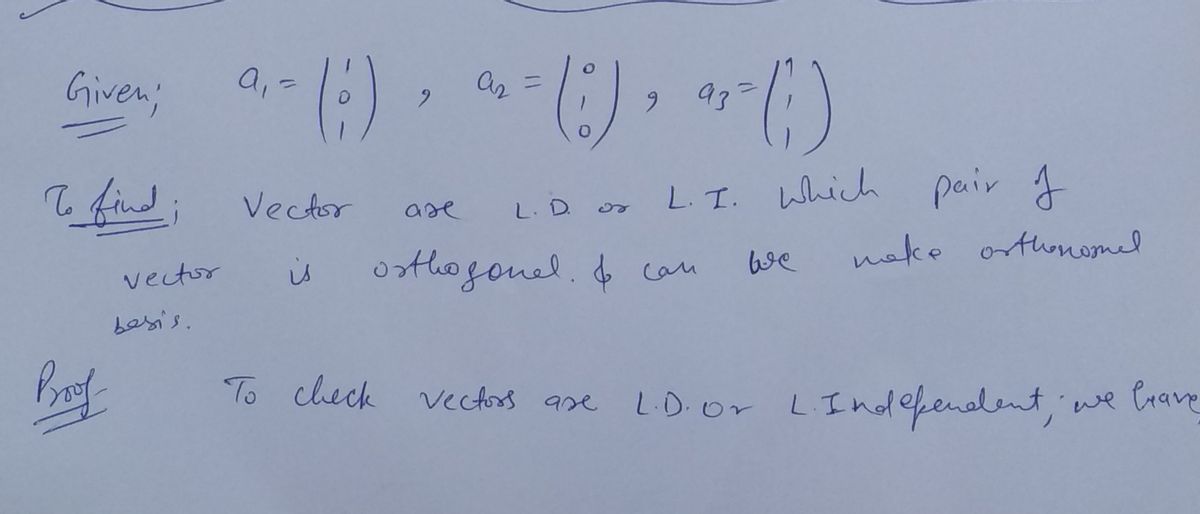 Given; a₁ = (1 0 1), a₂ = (0 1 0), a₃ = (1 1 1)
To find; Vector are L.D. or L.I. Which pair of
vector is orthogonal. & can we make orthonomel
basis.
Proof To check vectors are L.D. or L.Independent; we have